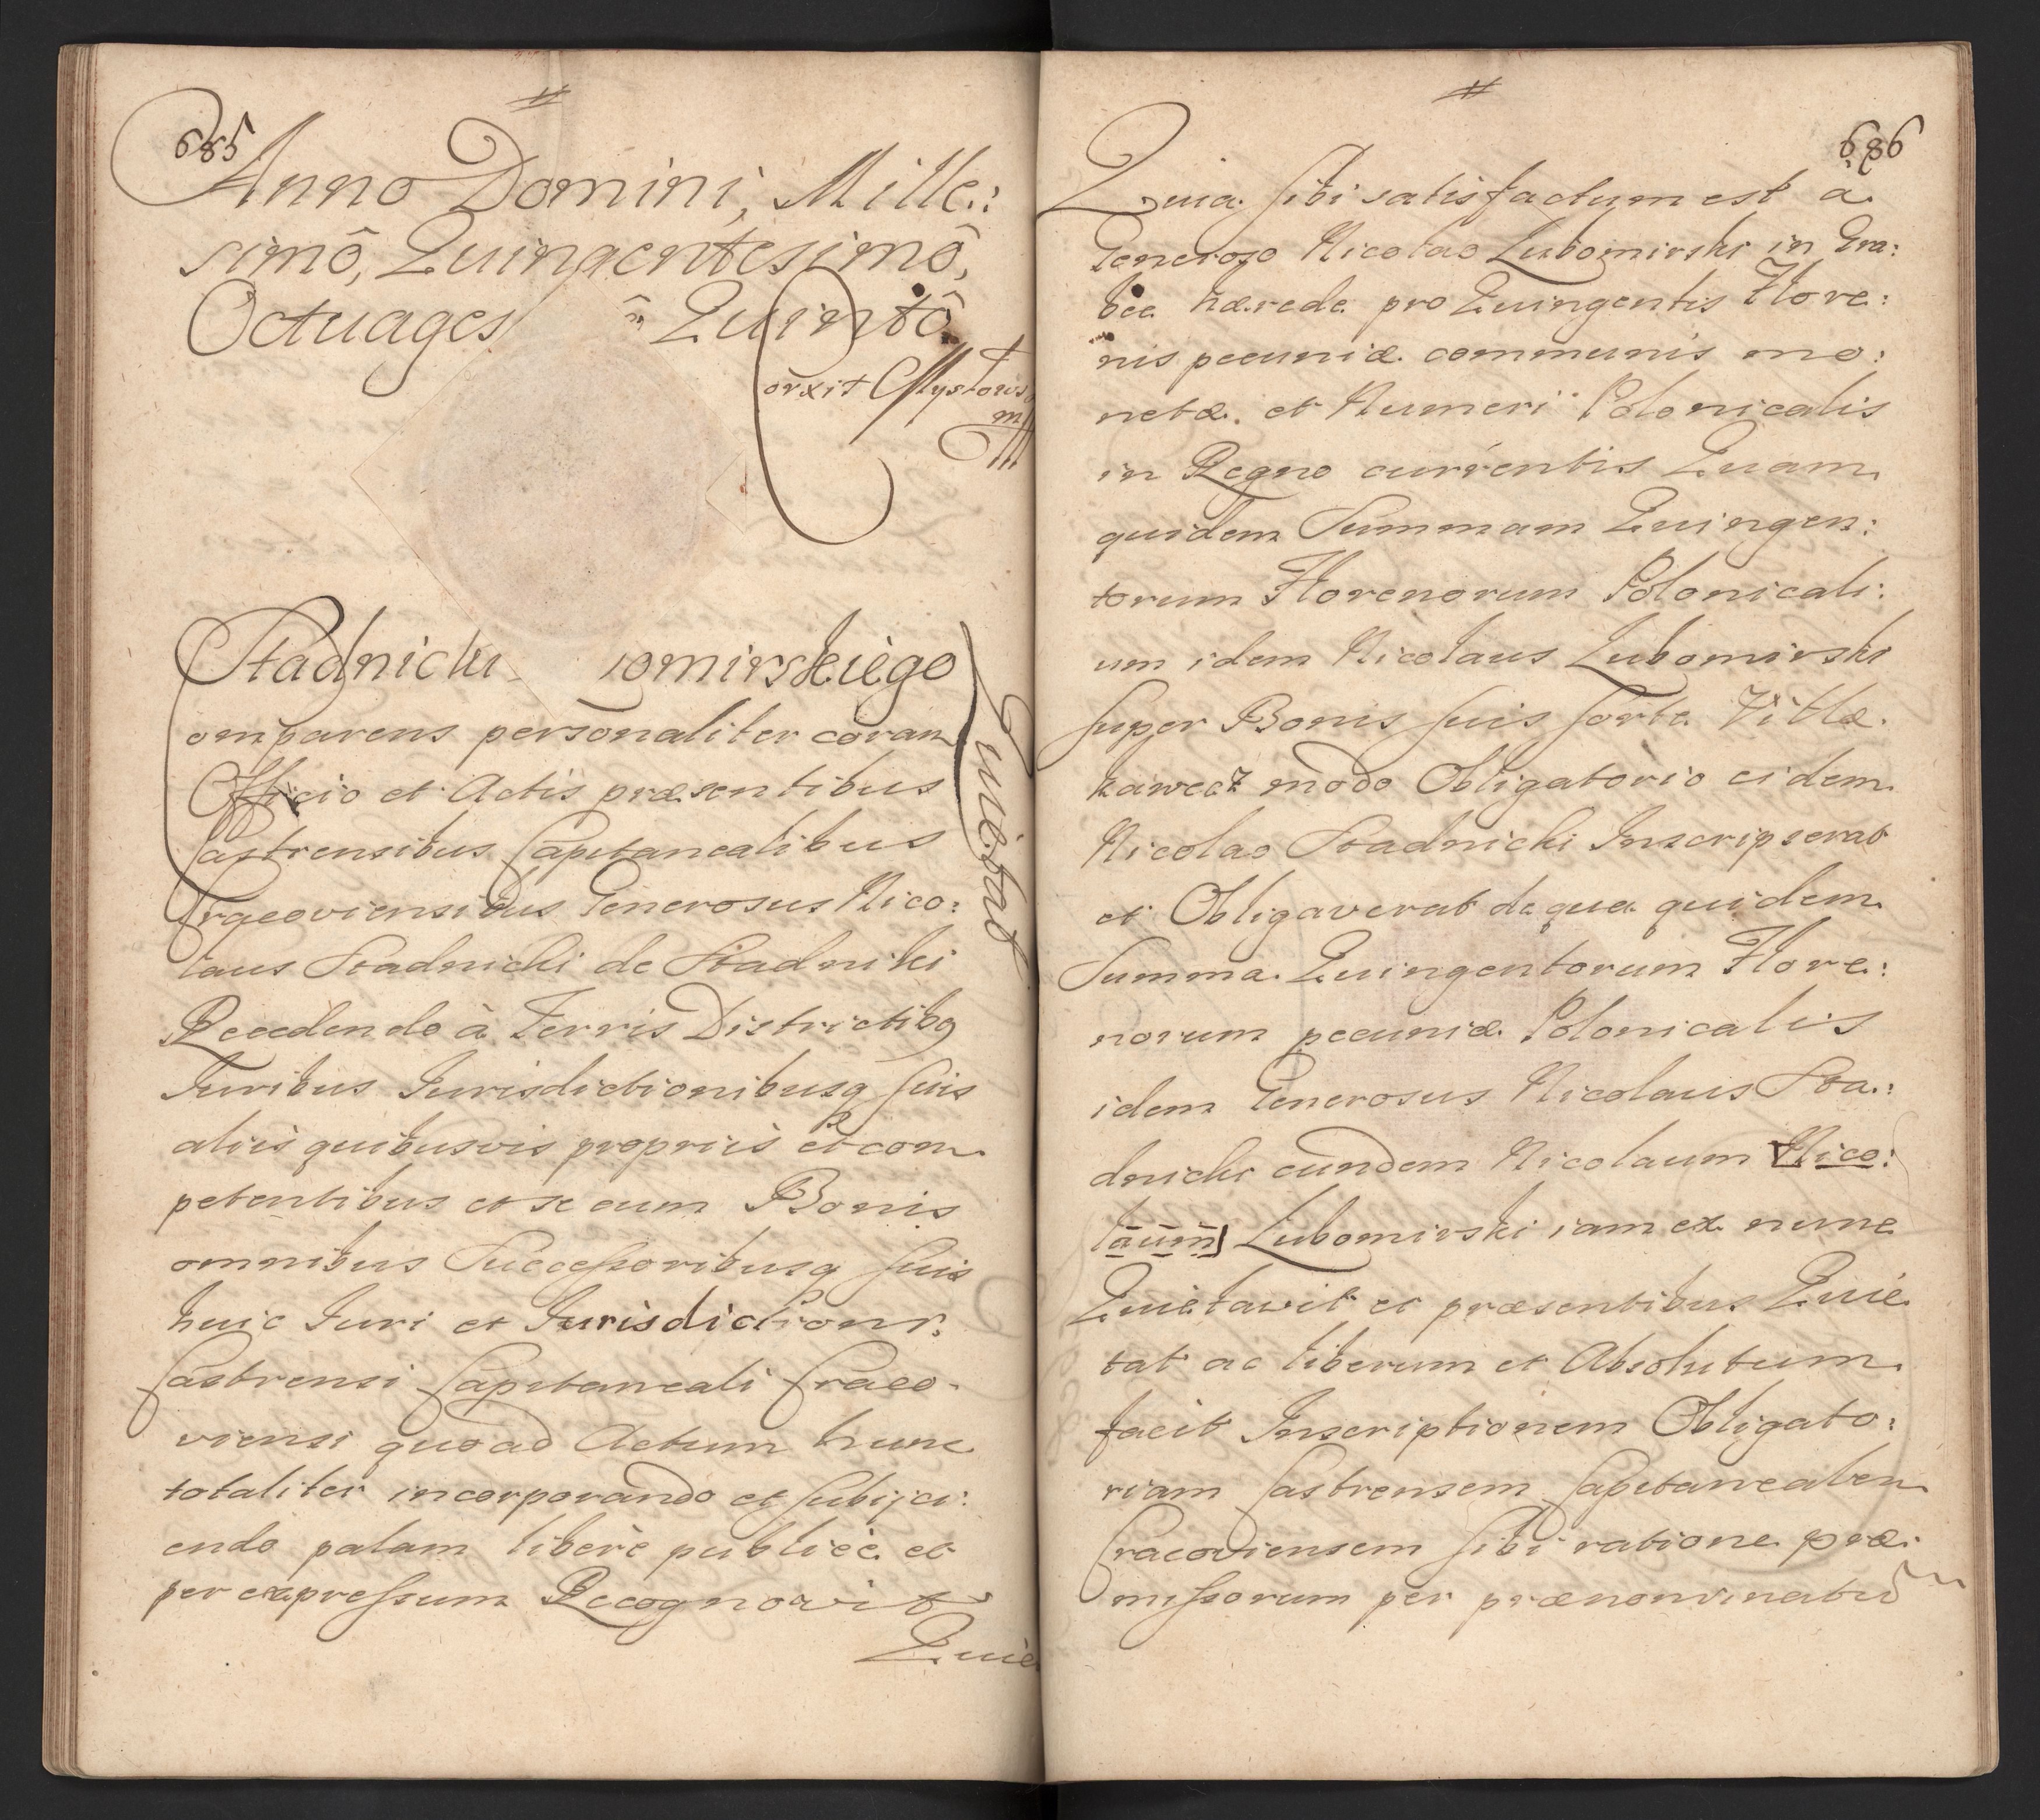 685
Anno Domini, Mille:
simô, Quingentesimô,
Octuages ô Quintô
Stadnicki omirskiego
omparens personaliter coram
Officio et Actis præsentibus
Castrensibus Capitanealibus
Cracoviensibus Generosus Nico:
laus Stadnicki de Stadniki
Recedendo à Terris Districtibq
Iuribus Iurisdictionibusq suis
aliis quibusvis propriis et com
petentibus et se cum Bonis
omnibus Successoribusq suis
huic Iuri et Iurisdictioni
Castrensi Capitaneali Craco-
viensi quo ad Actum hunc
totaliter incorporando et subijci:
endo palam liberè publicè et
per expressum Recognovit
Quie
Quietat
686
Quia sibi satisfactum est à
Generoso Nicolao Lubomirski in Gra:
bee hærede pro Quingentis Flore:
nis pecuniæ communis mo:
netæ et Numeri Polonicalis
in Regno currentis Quam
quidem Summam Quingen:
torum Florenorum Polonicali:
um idem Nicolaus Lubomirski
super Bonis suis sorte Villæ
modo Obligatorio eidem
Nicolao Stadnicki Inscripserat
et Obligaverat de qua quidem
Summa Quingentorum Flore:
norum pecuniæ Polonicalis
idem Generosus Nicolaus Sta:
dnicki eundem Nicolaum Nico:
laum Lubomirski iam ex nunc
Quietavit et præsentibus Quie
tat ac liberum et Absolutum
facit Inscriptionem Obligato:
riam Castrensem Capitanealem
Cracoviensem sibi ratione præ:
missorum per prænominatū